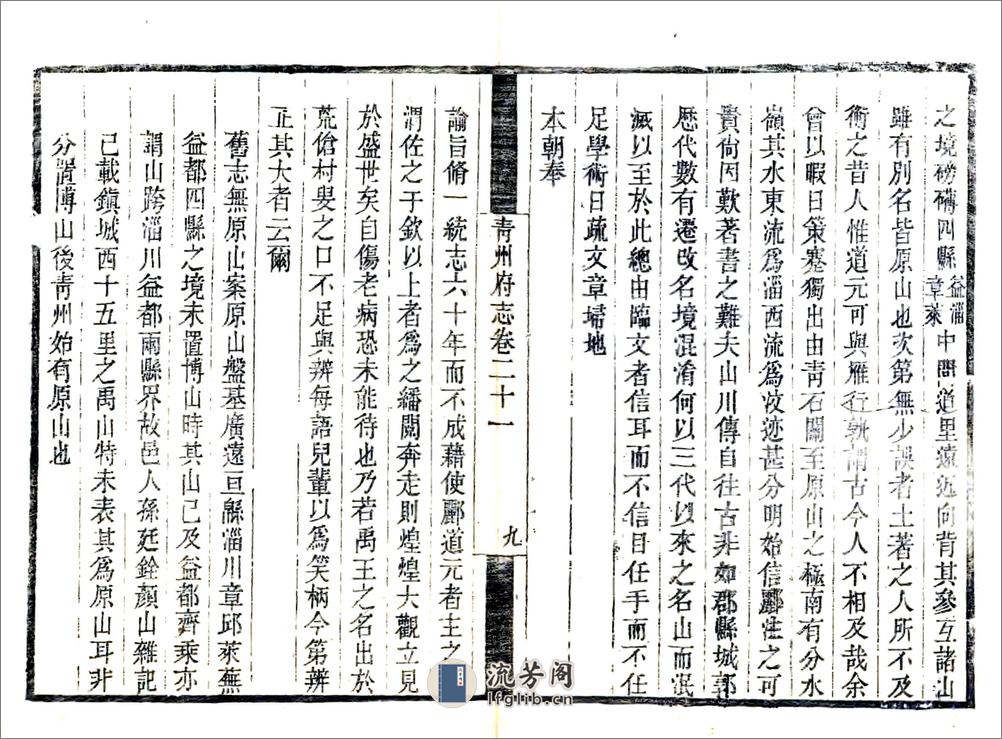 之境磅礴四縣益淄章萊中間道里遠近向背其參互諸山
雖有別名皆原山也次第無少誤者土著之人所不及
衝之昔人惟道元可與雁行孰謂古今人不相及哉余
曾以暇日策蹇獨出由青石關至原山之極南有分水
嶺其水東流爲淄西流爲汶迹甚分明始信酈注之可
貴尙因歎著書之難夫山川傳自往古非如郡縣城郭
歷代數有遷改名境混淆何以三代以來之名山而泯
滅以至於此總由臨文者信耳而不信目任手而不任
足學術日疏文章埽地
本朝奉
諭旨脩一統志六十年而不成藉使酈道元者主之
渭佐之于欽以上者爲之繙閱奔走則煌煌大觀立見
於盛世矣自傷老病恐未能待也乃若禹王之名出於
荒傖村叟之口不足與辨每語兒輩以爲笑柄今第辨
正其大者云爾
舊志無原山案原山盤基廣遠亘緜淄川章邱萊蕪
益都四縣之境未置博山時其山已及益都齊乘亦
謂山跨淄川益都兩縣界故邑人孫廷銓顏山雜記
已載鎭城西十五里之禹山特未表其爲原山耳非
分置博山後靑州始有原山也
靑州府志卷二十一
九
流芳阁
lfglib.cn